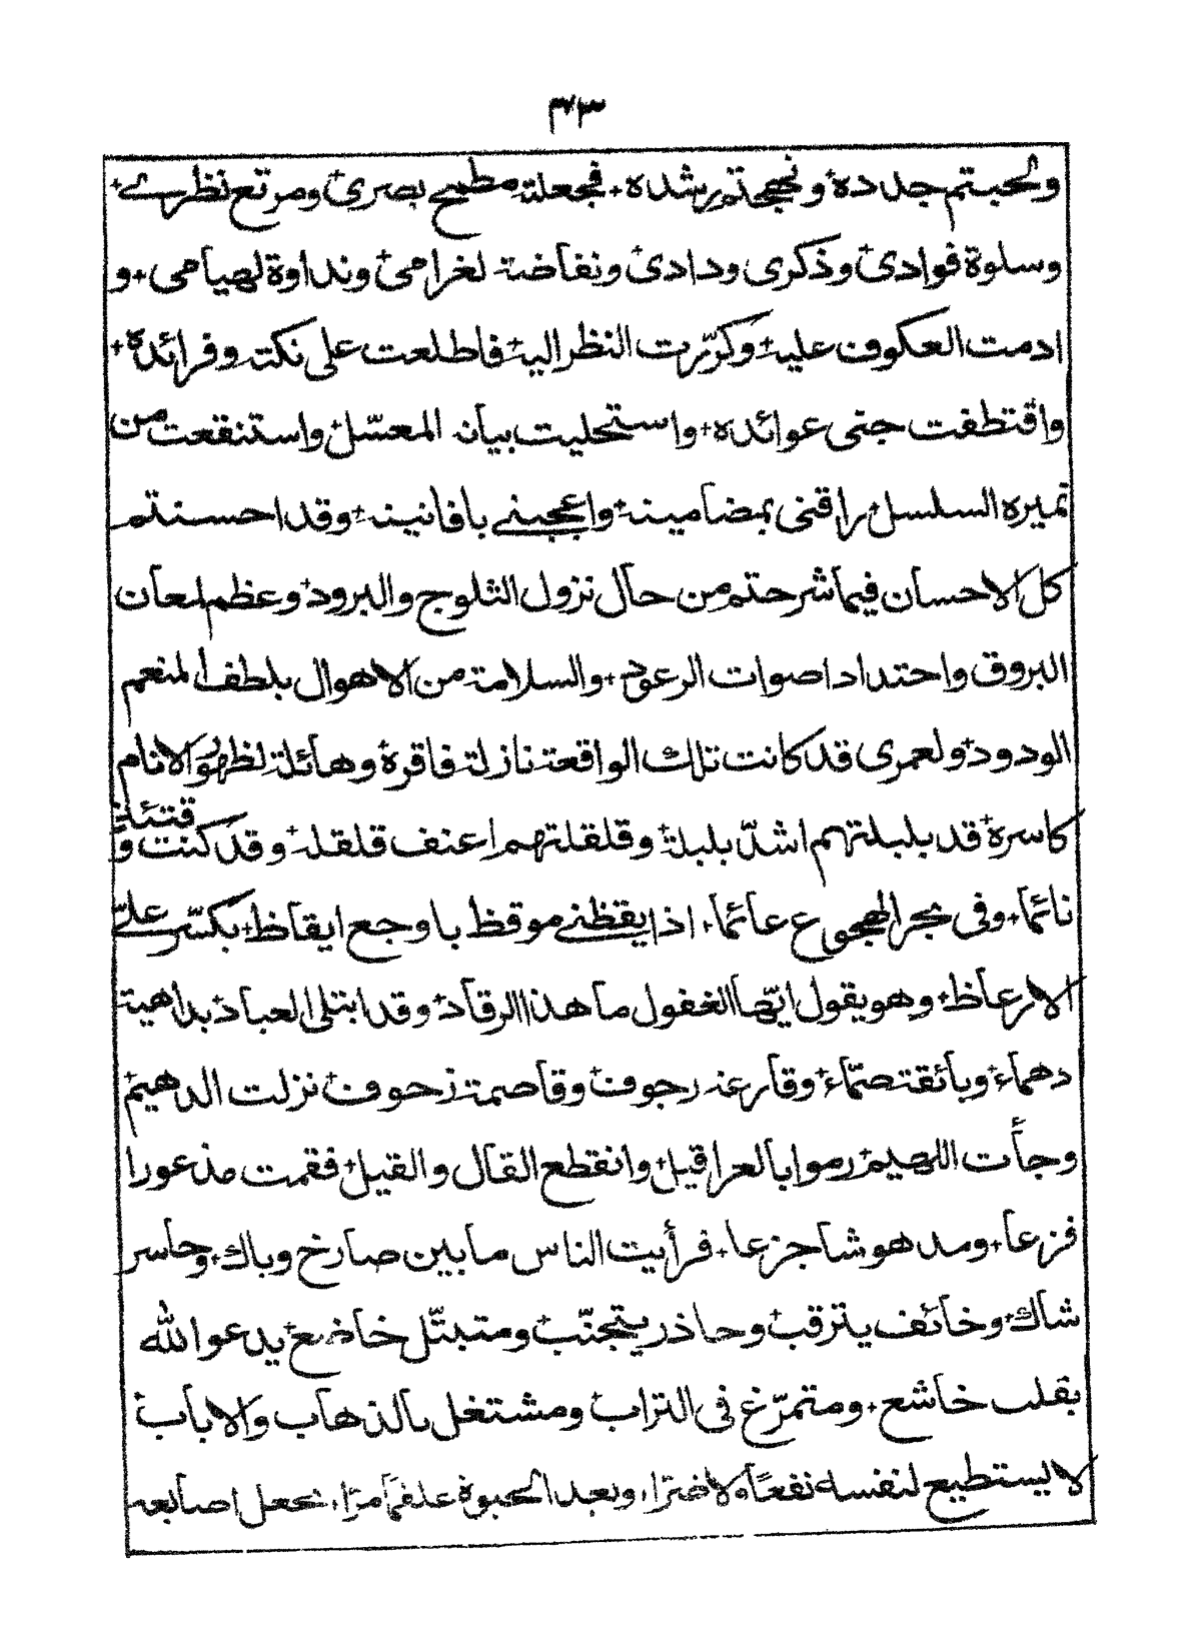 ٣٣
ولحبتم جدده ونهجتم رشده فجعلته مطمح بصرى ومرتع نظرے
وسلوة فوادى وذكرى ودادى ونفاضة لغرامى ونداوة لهيامى و
ادمت العكوف عليه وكرّرت النظر اليه فاطلعت على نكته وفرائده
واقتطفت جنى عوائده واستحليت بيانه المعسّل واستنقعت من
نميره السلسل راقنى بمضامينه واعجبنے بافانينه وقد احسنتم
كل الاحسان فيما شرحتم من حال نزول الثلوج والبرود وعظم لمعان
البروق واحتداد اصوات الرعود والسلامة من الاهوال بلطف المنعم
الودود ولعمرى قد كانت تلك الواقعة نازلة فاقرة وهائلة لظهور الانام
كاسرة قد بلبلتهم اشدّ بلبلة وقلقلتهم اعنف قلقلة وقد كنت وقتئذ
نائما وفى بحر الهجوع عائما اذا يقظنے موقظ باوجع ايقاظ بكسّر علىّ
الارعاظ وهو يقول ايّها الغفول ما هذا الرقاد وقد ابتلى العباد بداهية
دهماء وبائقة صمّاء وقارعة رجوف وقاصمة زحوف نزلت الدهيم
وجأت اللهيم رموا بالعراقيل وانقطع القال والقيل فقمت مذعورا
فزعا ومدهوشا جزعا فرأيت الناس مابين صارخ وباك وحاسر
شاك وخائف يترقب وحاذر يتجنّب ومتبتّل خاضع يدعوا الله
بقلب خاشع ومتمرّغ فى التراب ومشتغل بالذهاب والاياب
لا يستطيع لنفسه نفعا ولا ضرّا وبعد الحبوة علقما مرّا يجعل اصابعه